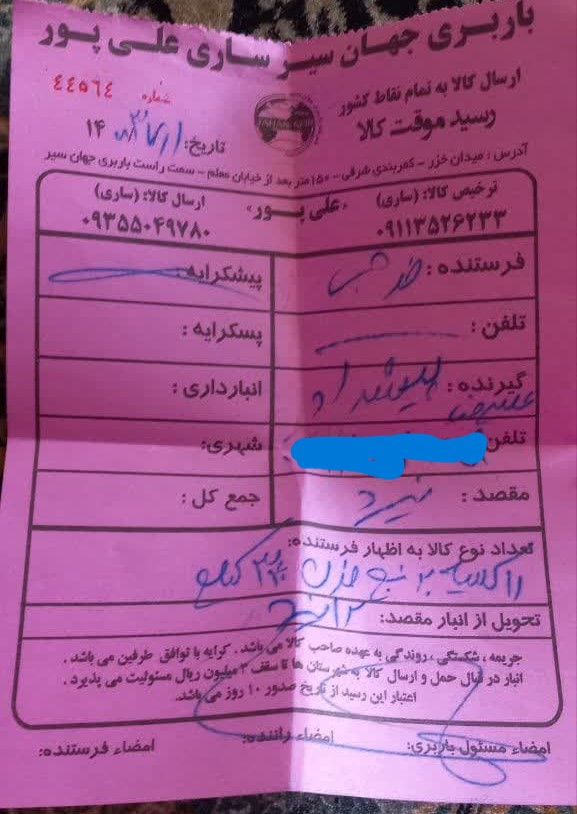 باربری جهان سیر ساری علی پور
ارسال کالا به تمام نقاط کشور
شماره ۴۴۵۶۴
رسید موقت کالا
JAHAN SEIR
تاریخ: ۱۴
آدرس : میدان خزر - کمربندی شرقی - ۱۵۰ متر بعد از خیابان معلم - سمت راست باربری جهان سیر
ترخیص کالا: (ساری) «علی پور» ارسال کالا: (ساری)
۰۹۱۱۳۵۲۶۲۳۳ ۰۹۳۵۵۰۴۹۷۸۰
فرستنده : پیشکرایه :
تلفن : پسکرایه :
گیرنده : انبارداری :
علیرضا
تلفن شهری:
مقصد : جمع کل :
تعداد نوع کالا به اظهار فرستنده:
تحویل از انبار مقصد:
جریمه ، شکستگی ، روندگی به عهده صاحب کالا می باشد . کرایه با توافق طرفین می باشد .
انبار در قبال حمل و ارسال کالا به شهرستان ها تا سقف ۳ میلیون ریال مسئولیت می پذیرد .
اعتبار این رسید از تاریخ صدور ۱۰ روز می باشد.
امضاء مسئول باربری: امضاء راننده: امضاء فرستنده: